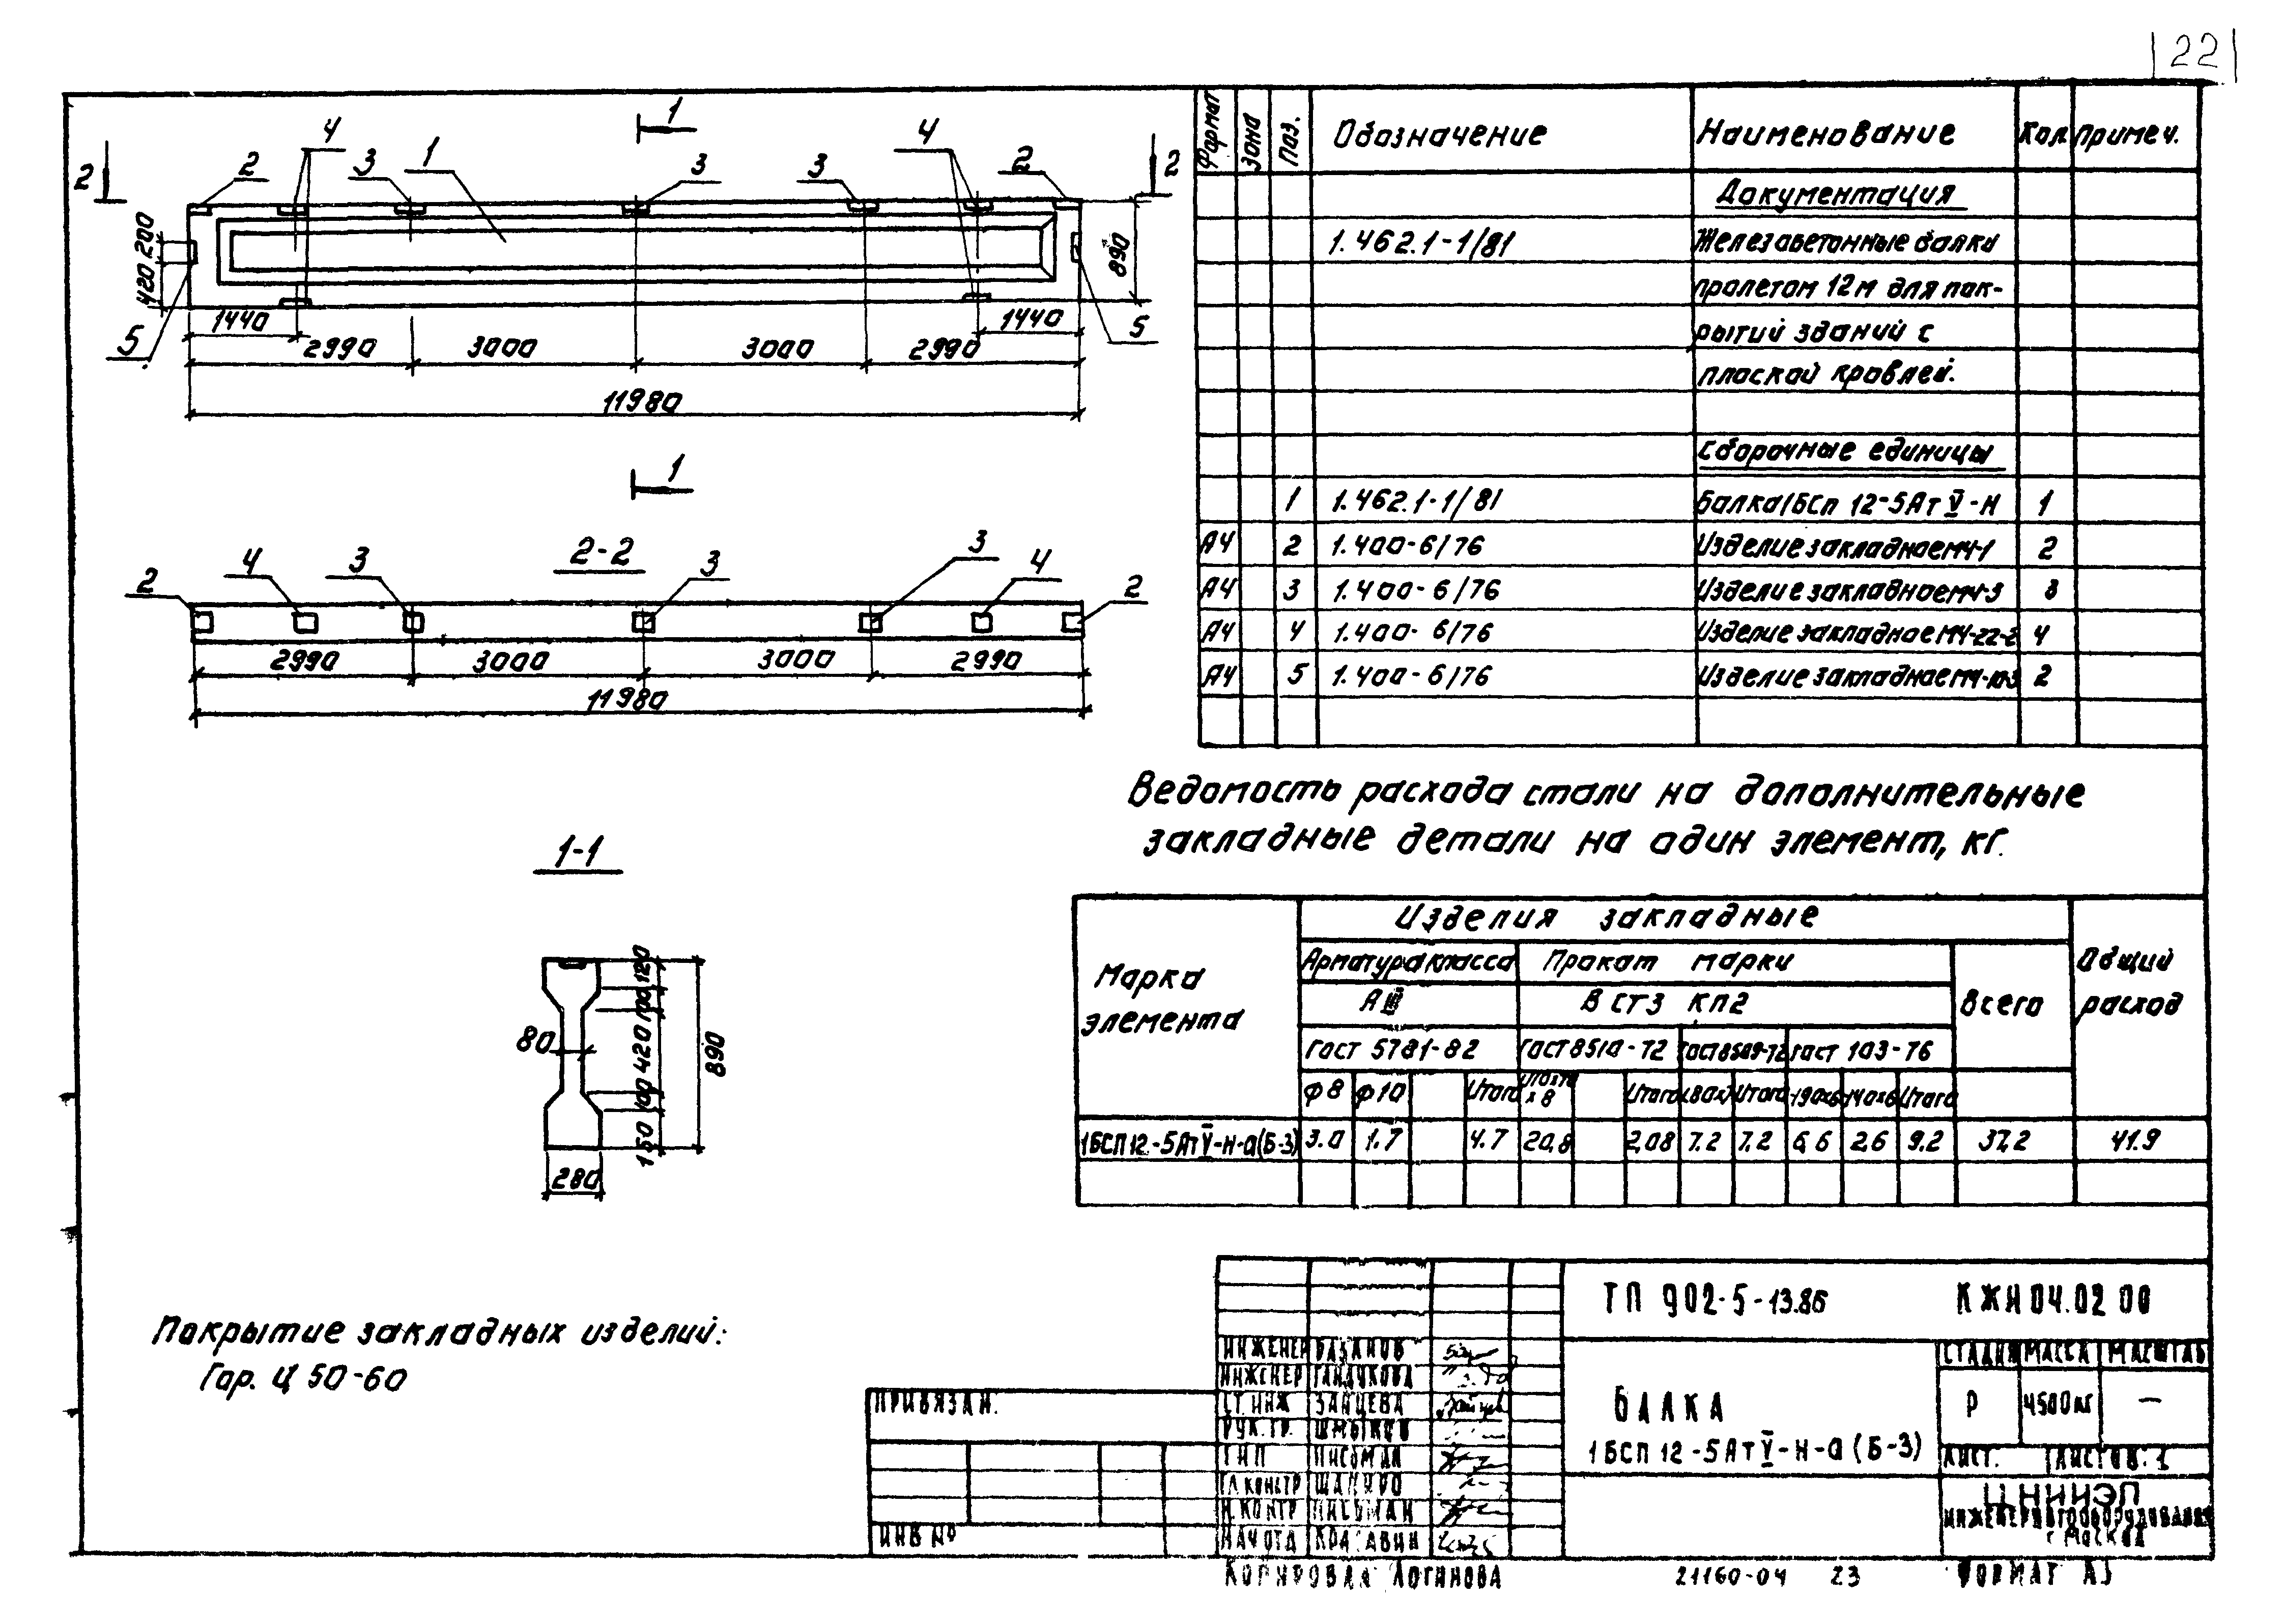 22
1
2
2
4
3
1
3
3
4
2
2
200
420
890
5
5
1440
1440
2990
3000
3000
2990
11980
1
2-2
2
4
3
3
3
4
2
2990
3000
3000
2990
11980
1-1
120
100
420
100
150
890
80
280
Покрытие закладных изделий:
Гар. Ц 50-60
Формат Зона Поз. Обозначение Наименование Кол. Примеч.
Документация
1.462.1-1/81 Железобетонные балки
пролетом 12м для пок-
рытий зданий с
плоской кровлей.
Сборочные единицы
1 1.462.1-1/81 Балка 1БСП 12-5АтV-Н 1
А4 2 1.400-6/76 Изделие закладное М4-1 2
А4 3 1.400-6/76 Изделие закладное М4-3
А4 4 1.400-6/76 Изделие закладное М4-22-2 4
А4 5 1.400-6/76 Изделие закладное М4-10-3 2
Ведомость расхода стали на дополнительные
закладные детали на один элемент, кг.
Марка элемента
Изделия закладные
Общий расход
Арматура класса Прокат марки
Всего
АIII В Ст3 кп2
ГОСТ 5781-82 ГОСТ 8510-72 ГОСТ 8509-72 ГОСТ 103-76
Ф8 Ф10 Итого Итого Итого -190х6 Итого
1БСП12-5АтV-Н-а(Б-3) 3.0 1.7 4.7 20,8 2,08 7.2 7.2 6,6 2,6 9.2 37,2 41.9
ТП 902-5-13.86 КЖИ 04.02 00
ИНЖЕНЕР
ИНЖЕНЕР
СТ. ИНЖ ЗАЙЦЕВА
РУК. ГР. ШМЫКОВ
ГИП ПИСЬМАН
ГЛ. КОНСТР ШАПИРО
Н. КОНТР ПИСЬМАН
НАЧ ОТД КРАСАВИН
БАЛКА
1БСП 12-5АтV-Н-а (Б-3)
СТАДИЯ МАССА МАСШТАБ
Р 4500кг —
ЛИСТ. ЛИСТОВ: 1
ЦНИИЭП
ИНЖЕНЕРНОГО ОБОРУДОВАНИЯ
г. Москва
ПРИВЯЗАН:
ИНВ №
КОПИРОВАЛ ЛОГИНОВА 21160-04 23 ФОРМАТ А3